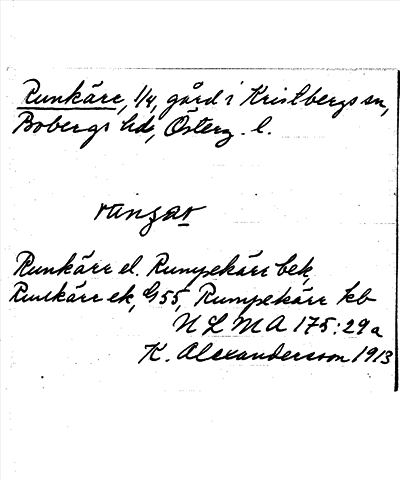 Runkärr, 1/4, gård i Kristbergs sn,
Bobergs hd, Österg. l.
rungar
Runkärr el. Rumpekärr bek,
Runkärr ek, G55, Rumpekärr kb
N L M A 175:29a
K. Alexandersson 1913